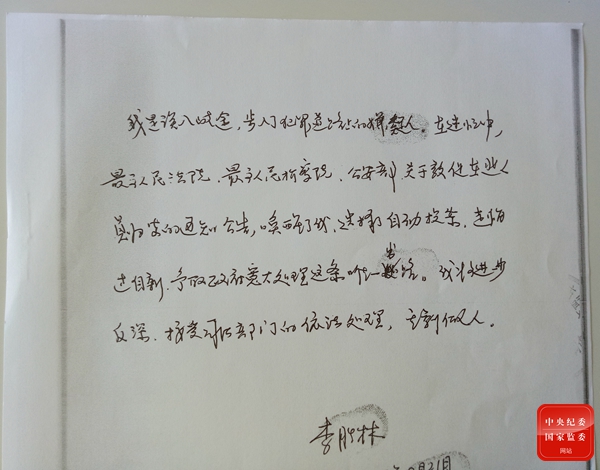 我是误入歧途,步入犯罪道路的罪人。在迷惘中,
最高人民法院、最高人民检察院、公安部关于敦促在逃人
员归案的通知公告,唤醒了我,选择了自动投案、悔
过自新、争取政府宽大处理这条唯一出路。我将进步
反深,接受司法部门的依法处理,重新做人。
李胜林
月21日
中央纪委
国家监委
网站